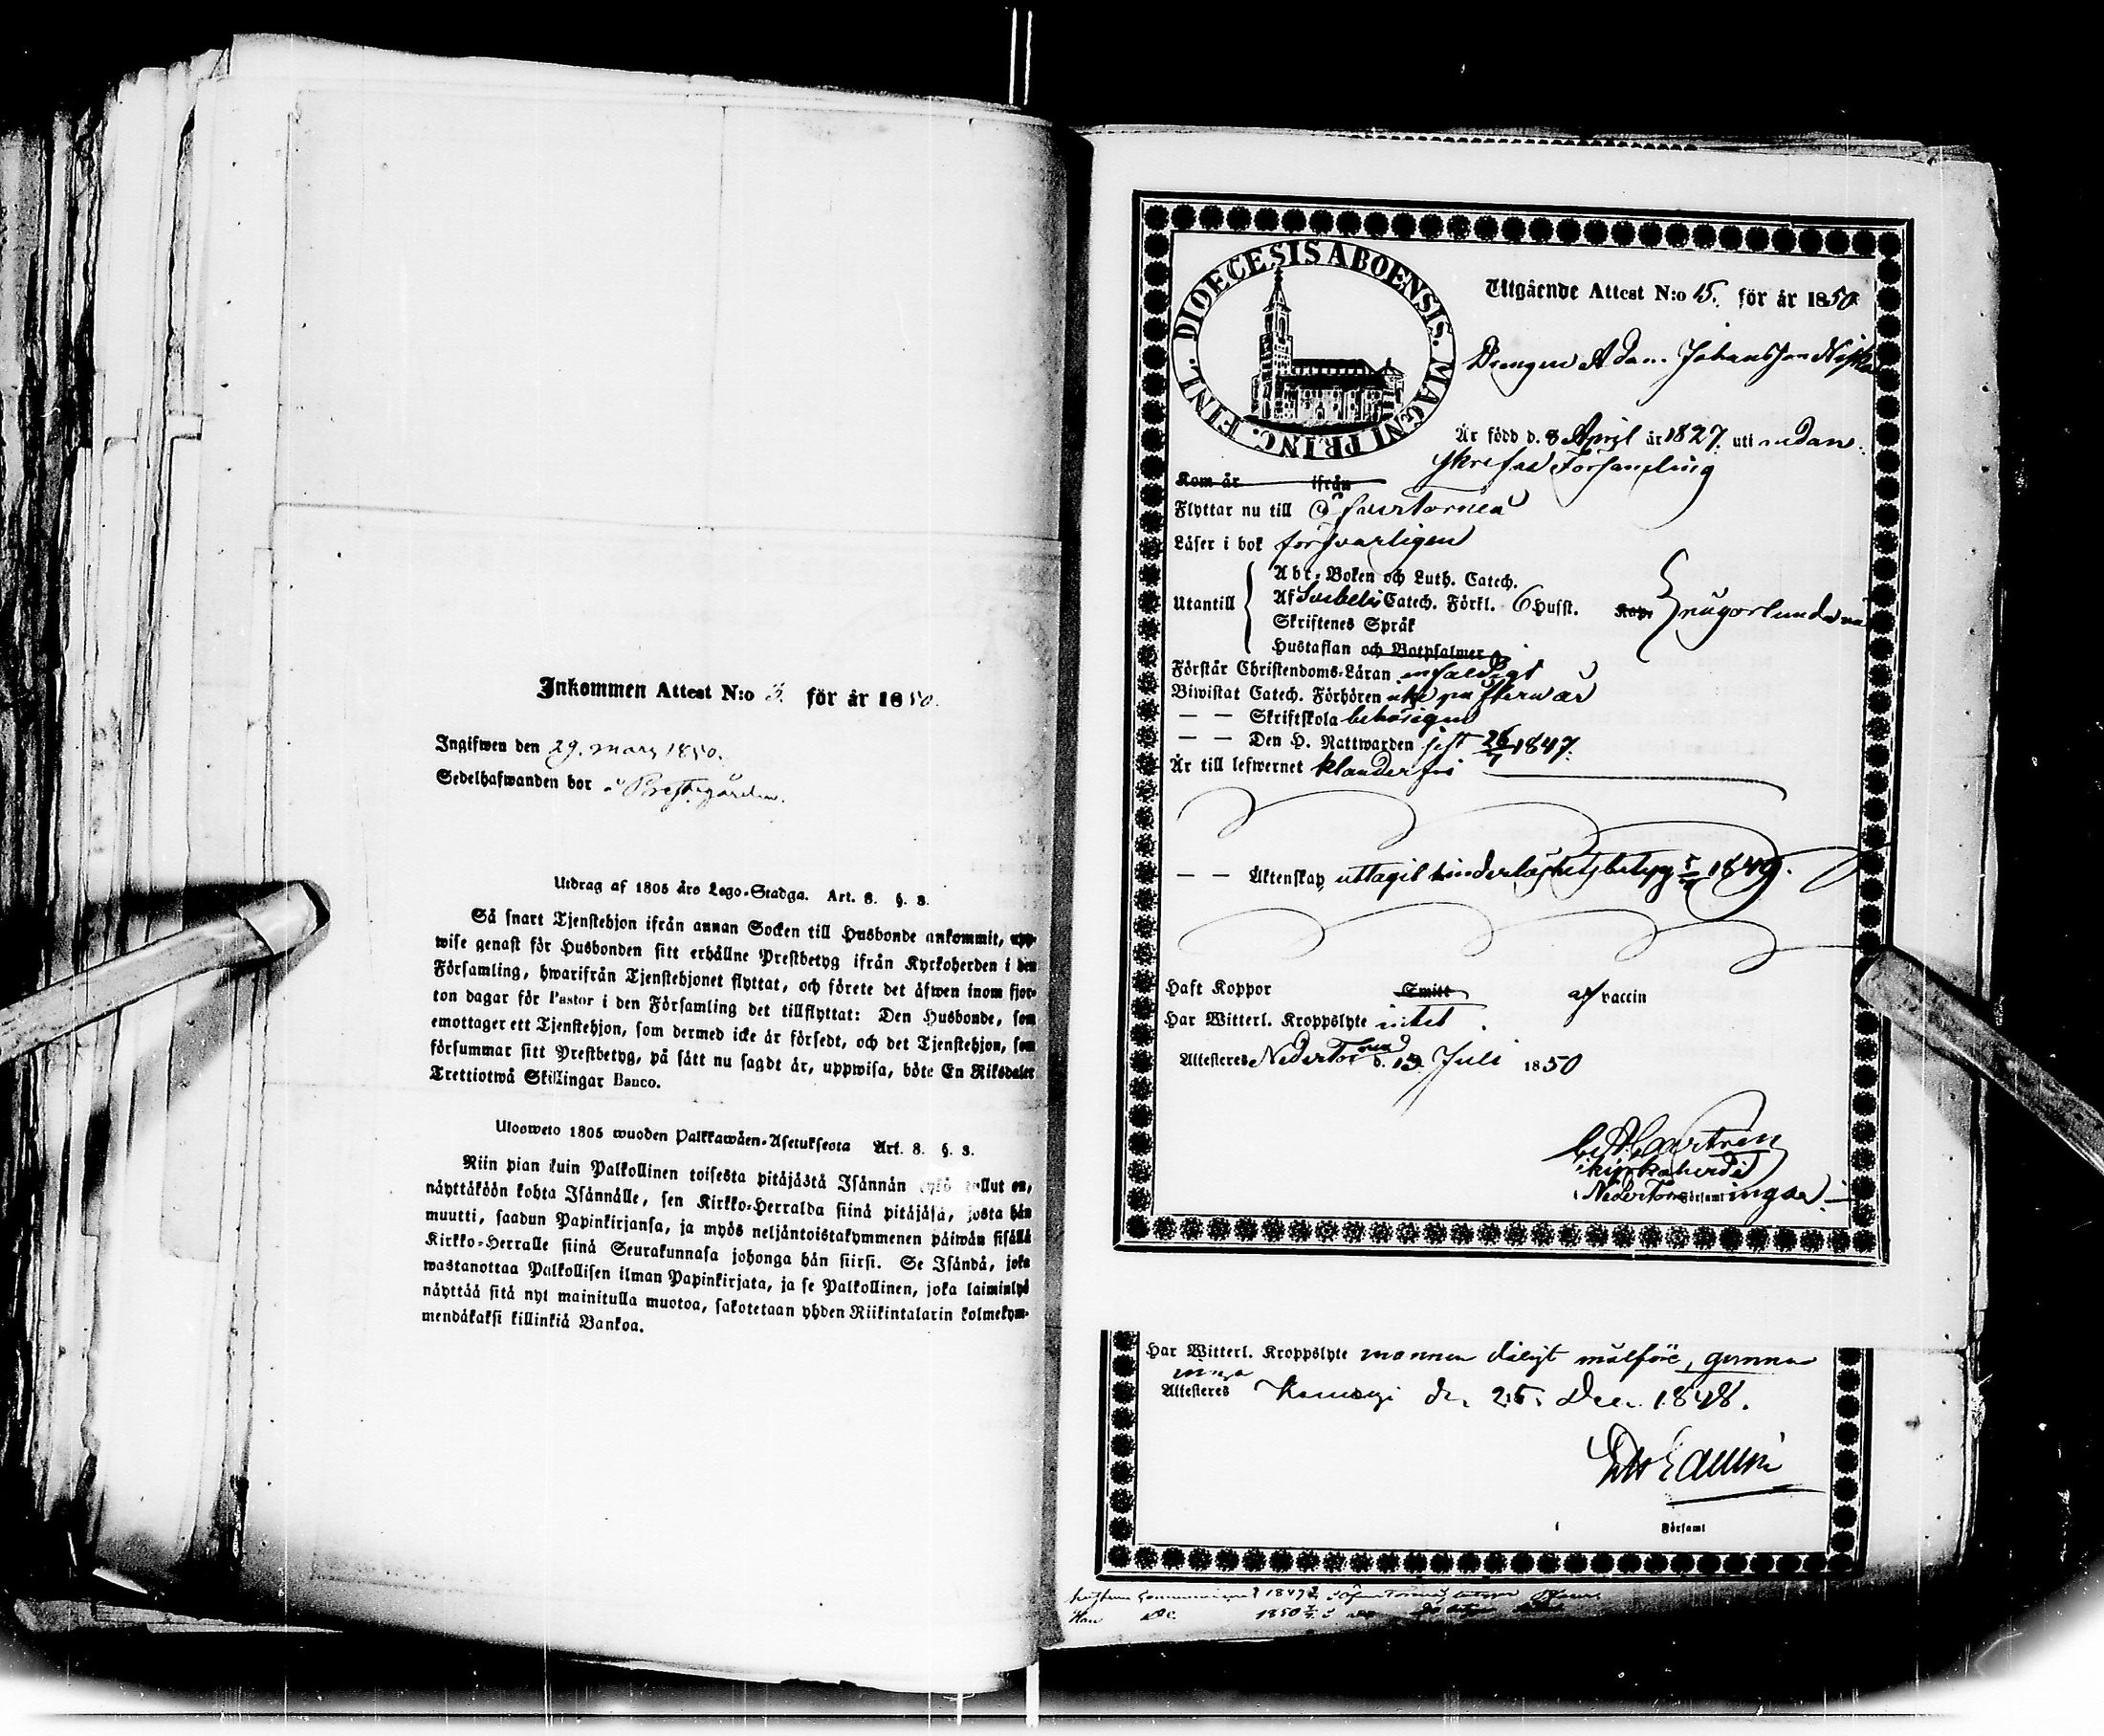 Inkommen Attest N:o 3. för år 1850.
Ingifwen den 29. mars 1850.
Sedelhafwanden bor i Prestgården.
Utdrag af 1805 års Lego-Stadga. Art. 8. §. 3.
Så snart Tjenstehjon ifrån annan Socken till Husbonde ankommit, upp-
wise genast för Husbonden sitt erhållne Prestbetyg ifrån Kyrkoherden i den
Församling, hwarifrån Tjenstehjonet flyttat, och förete det äfwen inom fjor-
ton dagar för Pastor i den Församling det tillflyttat: Den Husbonde, som
emottager ett Tjenstehjon, som dermed icke är försedt, och det Tjenstehjon, som
försummar sitt Prestbetyg, på sätt nu sagdt är, uppwisa, böte En Riksdaler
Trettiotwå Skillingar Banco.
Ulosweto 1805 wuoden Palkkawäen-Asetuksesta Art. 8. §. 3.
Niin pian kuin Palkollinen toisesta pitäjästä Isännän tykö tullut on,
näyttäköön kohta Isännälle, sen Kirkko-Herralda siinä pitäjäsä, josta hän
muutti, saadun Papinkirjansa, ja myös neljäntoistakymmenen päiwän sisällä
Kirkko-Herralle siinä Seurakunnasa johonga hän siirsi. Se Isändä, joka
wastanottaa Palkollisen ilman Papinkirjata, ja se Palkollinen, joka laiminlyö
näyttää sitä nyt mainitulla muotoa, sakotetaan yhden Riikintalarin kolmekym-
mendäkaksi killinkiä Bankoa.
DIOECESIS ABOENSIS. MAGNI PRINC. FINL.
Utgående Attest N:o 15. för år 1850
Drengen Adam Johansson
Är född d. 8 April år 1827. uti nedan-
skrefne Församling
Kom år ifrån
Flyttar nu till Öfvertorneå
Läser i bok försvarligen
Utantill
Abc-Boken och Luth. Catech.
Af Svebelii Catech. Förkl. 6 Husst.
Skriftenes Språk
Hustaflan och Botpsalmer
Förstår Christendoms-Läran enfaldigt
Biwistat Catech. Förhören
— — Skriftskola behörigen
— — Den H. Nattwarden sist 26/ 1847.
Är till lefwernet klanderfri
— — Äktenskap uttagit hinderlöshetsbetyg 1849.
Haft Koppor Smitt af vaccin
Har Witterl. Kroppslyte intet
Attesteres Nedertorneå d. 13 Juli 1850
C. A. Castren
kyrkoherde
i Nedertorneå Församlingar
Har Witterl. Kroppslyte mannen dåligt målföre, qvinnan
inga
Attesteres den 25. Dec. 1848.
Församl